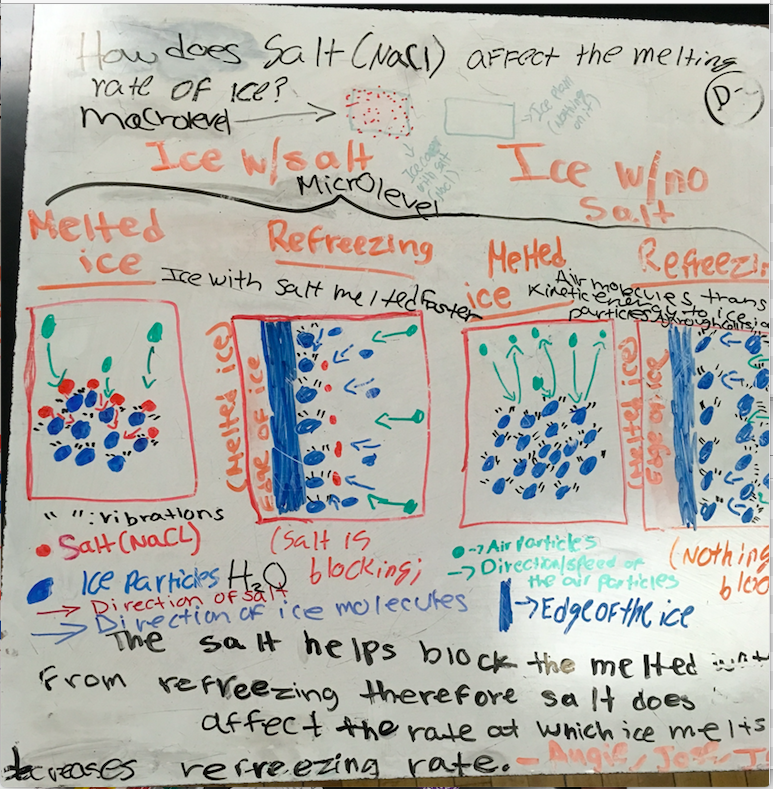 How does Salt (NaCl) affect the melting
rate of ice?
D-
Macrolevel
Ice w/salt
Ice w/no
Salt
Microlevel
Melted
ice
Refreezing
Melted
ice
Ice with salt melted faster
Air molecules trans
kinetic energy to ice
particles through
(Melted ice)
Edge of ice
(Melted ice)
Edge of ice
" ": vibrations
Salt (NaCL)
Ice Particles H2O
Direction of salt
Direction of ice molecules
(Salt is
blocking;
Air particles
Direction/speed of
the air particles
Edge of the ice
(Nothing
The salt helps block the melted
From refreezing therefore salt does
affect the rate at which ice melts
decreases refreezing rate. - Angie, Jose,